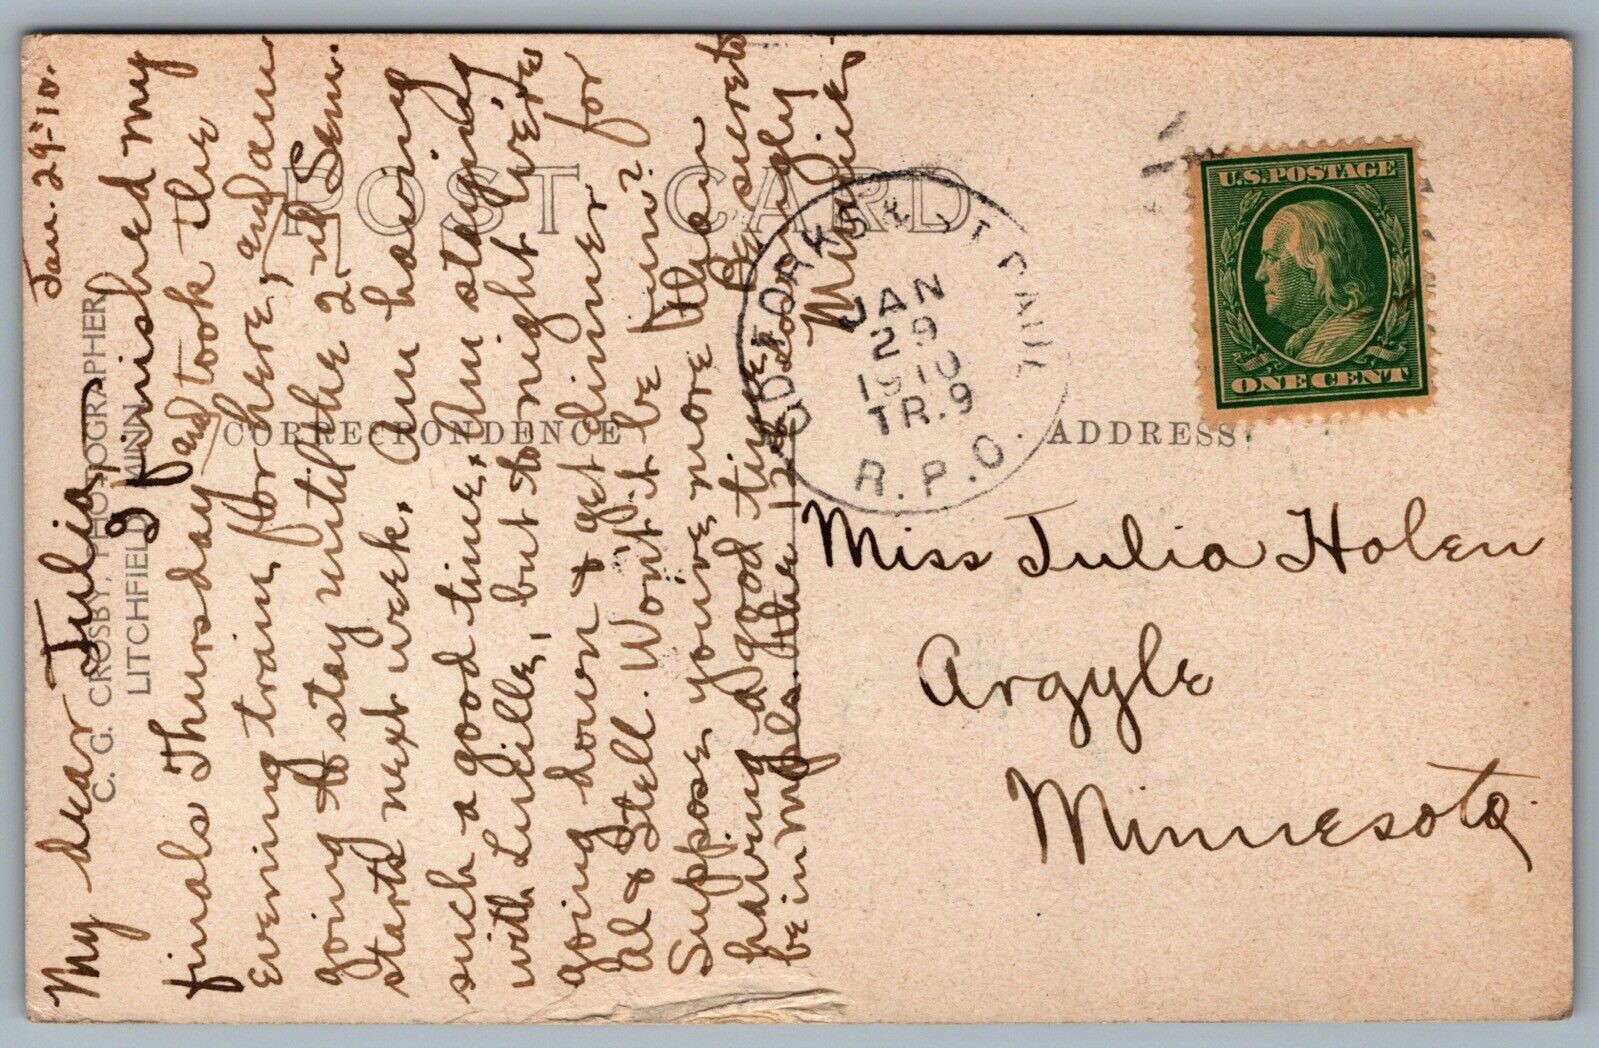 Jan. 29-'10.
My dear Julia,
I finished my
finals Thursday and took the
evening train for here, and am
going to stay until the 2nd Sem.
starts next week. Am having
such a good time. Am staying
with Lucille, but tonight we're
going down & get dinner for
Al & Stell. Won't be fun?
Suppose you've more than
having a good time. Be sure to
be in Mpls. the 12
Lovingly
POST CARD
CORRESPONDENCE
ADDRESS
C. G. CROSBY, PHOTOGRAPHER
LITCHFIELD MINN
FORKS & ST PAUL
JAN
29
1910
TR. 9
R.P.O.
U.S. POSTAGE
ONE CENT
Miss Julia Holen
Argyle
Minnesota.